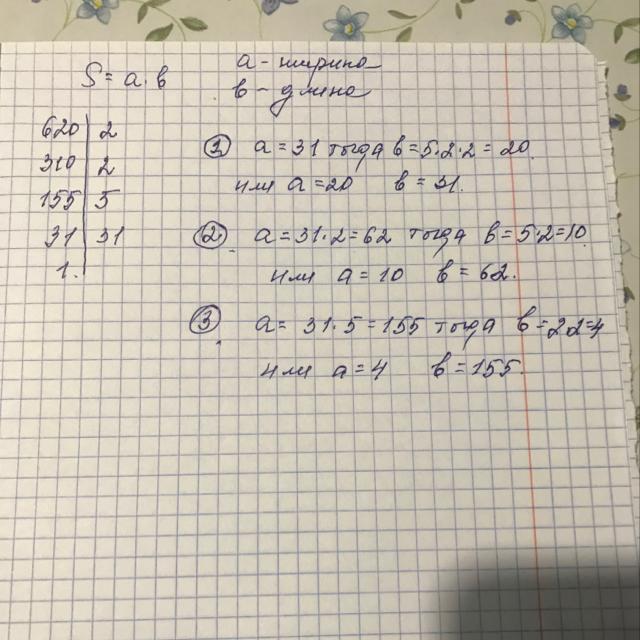 S = a · в
a - ширина
в - длина
620 | 2
310 | 2
155 | 5
31 | 31
1.
① a = 31 тогда в = 5·2·2 = 20.
или a = 20 в = 31.
② a = 31·2 = 62 тогда в = 5·2 = 10
или a = 10 в = 62.
③ a = 31·5 = 155 тогда в = 2·2 = 4
или a = 4 в = 155.